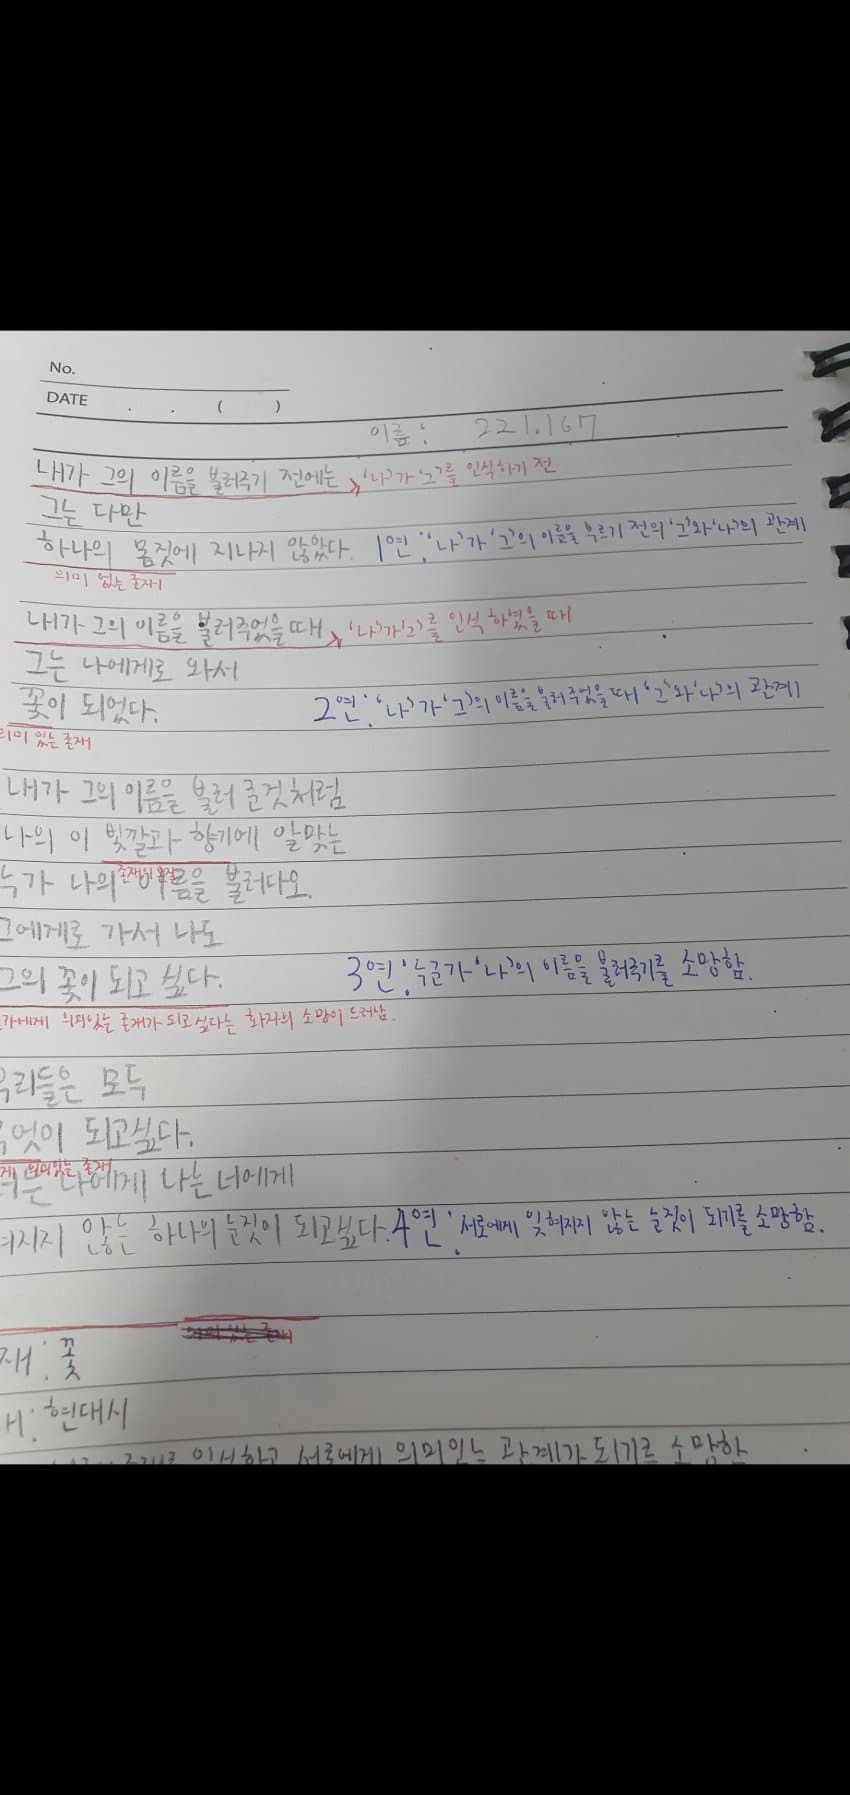 No.
DATE . . ( )
이름: 221.167
내가 그의 이름을 불러주기 전에는 '나'가 '그'를 인식하기 전
그는 다만
하나의 몸짓에 지나지 않았다. 1연: '나'가 '그'의 이름을 부르기 전의 '그'와 '나'의 관계
의미 없는 존재
내가 그의 이름을 불러주었을때 '나'가 '그'를 인식 하였을 때
그는 나에게로 와서
꽃이 되었다. 2연: '나'가 '그'의 이름을 불러주었을 때 '그'와 '나'의 관계
의미 있는 존재
내가 그의 이름을 불러 준것처럼
나의 이 빛깔과 향기에 알맞는
존재의 본질
누가 나의 이름을 불러다오.
그에게로 가서 나도
그의 꽃이 되고 싶다. 3연: 누군가 '나'의 이름을 불러주기를 소망함.
가에게 의미있는 존재가 되고싶다는 화자의 소망이 드러남.
우리들은 모두
무엇이 되고싶다.
의미있는 존재
너는 나에게 나는 너에게
혀지지 않는 하나의 눈짓이 되고싶다. 4연: 서로에게 잊혀지지 않는 눈짓이 되기를 소망함.
의미 있는 존재
재: 꽃
현대시
서로에게 의미있는 관계가 되기를 소망함